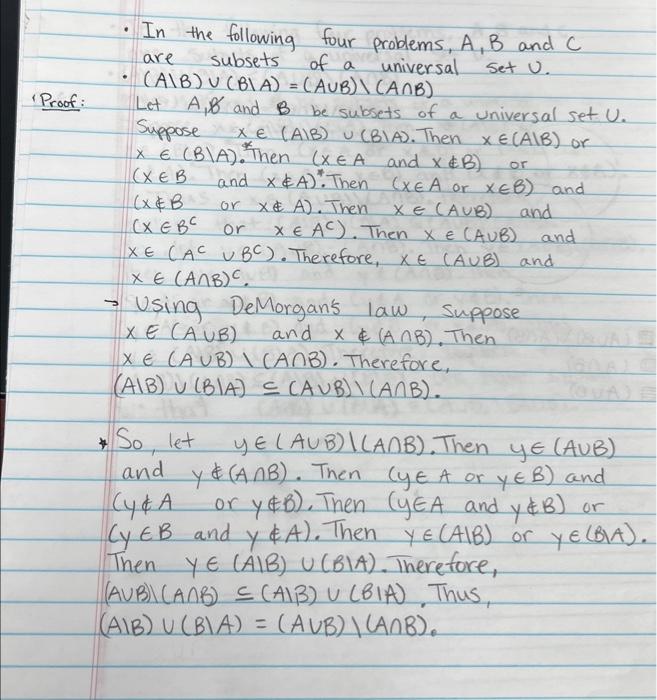 • In the following four problems, A, B and C
are subsets of a universal set U.
• (A\B) ∪ (B\A) = (A∪B)\(A∩B)
Proof: Let A, B and B be subsets of a universal set U.
Suppose x ∈ (A\B) ∪ (B\A). Then x ∈ (A\B) or
x ∈ (B\A).* Then (x ∈ A and x ∉ B) or
(x ∈ B and x ∉ A)*. Then (x ∈ A or x ∈ B) and
(x ∉ B or x ∉ A). Then x ∈ (A∪B) and
(x ∈ Bᶜ or x ∈ Aᶜ). Then x ∈ (A∪B) and
x ∈ (Aᶜ ∪ Bᶜ). Therefore, x ∈ (A∪B) and
x ∈ (A∩B)ᶜ.
→ Using DeMorgan's law, suppose
x ∈ (A∪B) and x ∉ (A∩B). Then
x ∈ (A∪B) \ (A∩B). Therefore,
(A\B) ∪ (B\A) ⊆ (A∪B)\(A∩B).
* So, let y ∈ (A∪B)\(A∩B). Then y ∈ (A∪B)
and y ∉ (A∩B). Then (y ∈ A or y ∈ B) and
(y ∉ A or y ∉ B). Then (y ∈ A and y ∉ B) or
(y ∈ B and y ∉ A). Then y ∈ (A\B) or y ∈ (B\A).
Then y ∈ (A\B) ∪ (B\A). Therefore,
(A∪B)\(A∩B) ⊆ (A\B) ∪ (B\A). Thus,
(A\B) ∪ (B\A) = (A∪B)\(A∩B).